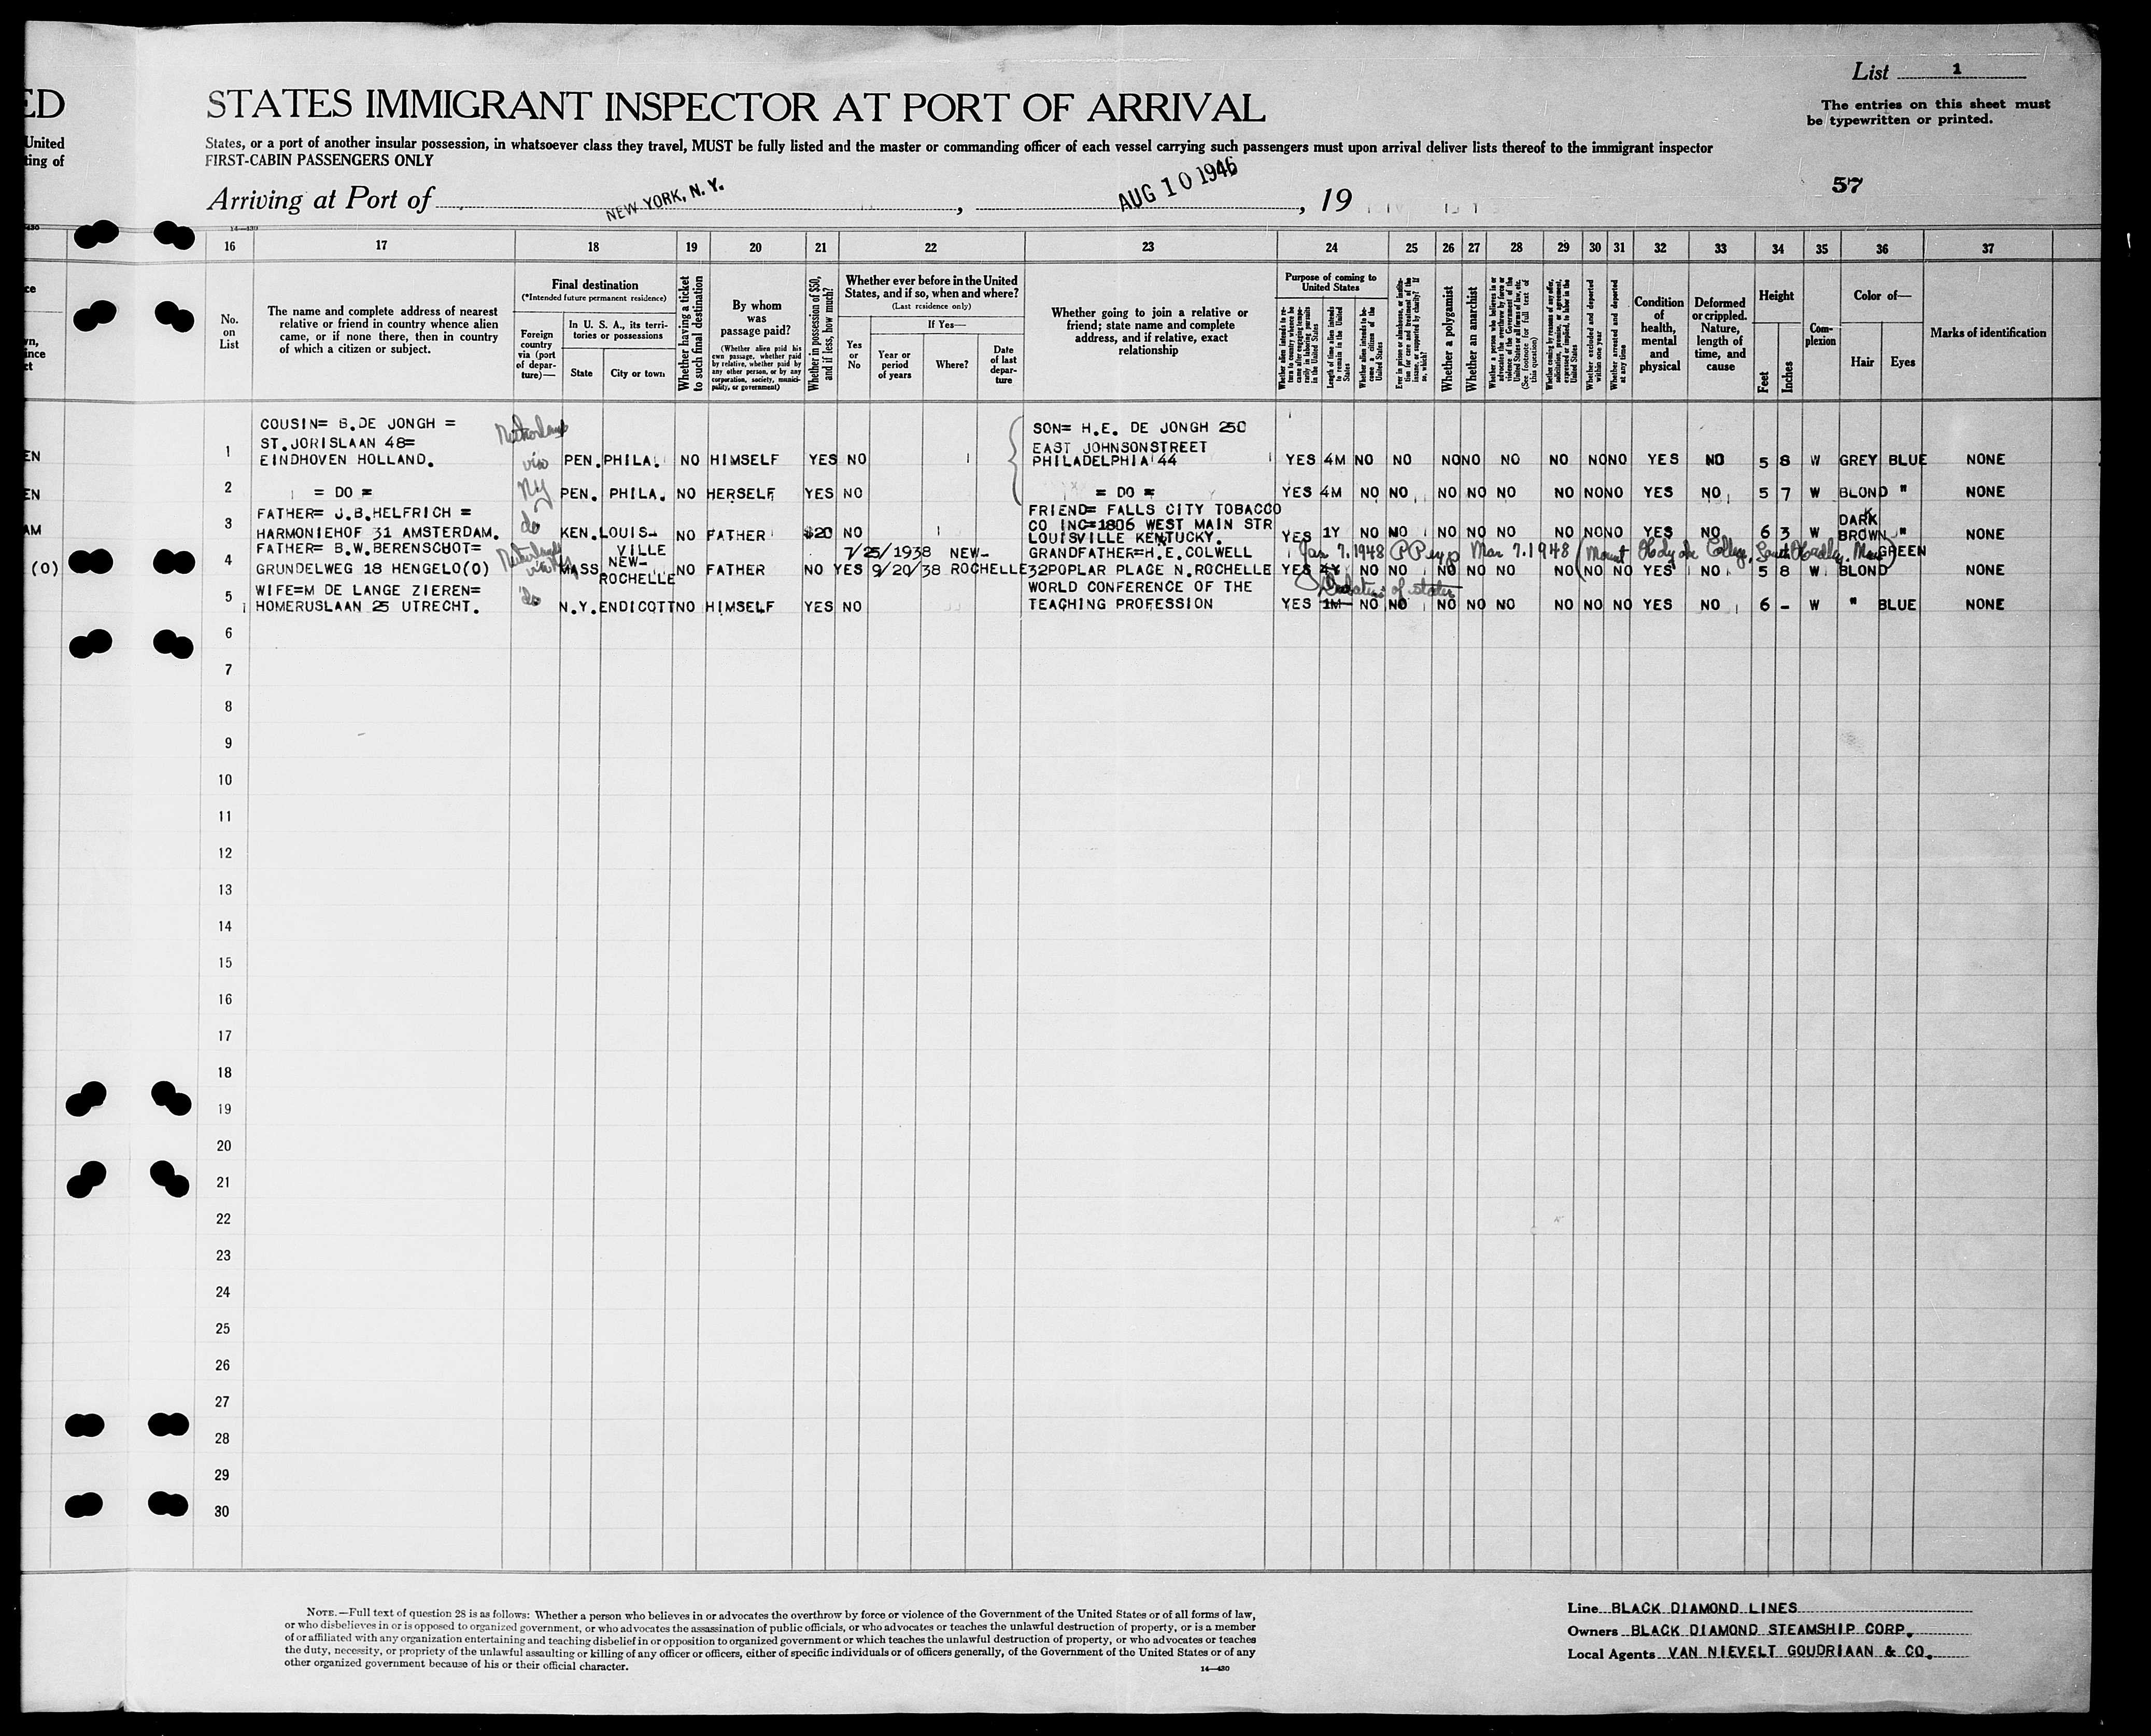 List 1
ED
STATES IMMIGRANT INSPECTOR AT PORT OF ARRIVAL
The entries on this sheet must
be typewritten or printed.
United
States, or a port of another insular possession, in whatsoever class they travel, MUST be fully listed and the master or commanding officer of each vessel carrying such passengers must upon arrival deliver lists thereof to the immigrant inspector
ting of
FIRST-CABIN PASSENGERS ONLY
57
Arriving at Port of NEW YORK, N. Y. , AUG 10 1946 , 19
14—430
16 17 18 19 20 21 22 23 24 25 26 27 28 29 30 31 32 33 34 35 36 37
No. on List
The name and complete address of nearest
relative or friend in country whence alien
came, or if none there, then in country
of which a citizen or subject.
Final destination
(*Intended future permanent residence)
Foreign country via (port of departure)—
In U. S. A., its territories or possessions
State
City or town
Whether having a ticket to such final destination
By whom was passage paid?
(Whether alien paid his own passage, whether paid by relative, whether paid by any other person, or by any corporation, society, municipality, or government)
Whether in possession of $50, and if less, how much?
Whether ever before in the United States, and if so, when and where?
(Last residence only)
Yes or No
If Yes—
Year or period of years
Where?
Date of last departure
Whether going to join a relative or
friend; state name and complete
address, and if relative, exact
relationship
Purpose of coming to United States
Whether alien intends to return to country whence he came after engaging temporarily in laboring pursuits in the United States
Length of time alien intends to remain in the United States
Whether alien intends to become a citizen of the United States
Ever in prison or almshouse, or institution for care and treatment of the insane, or supported by charity? If so, which?
Whether a polygamist
Whether an anarchist
Whether a person who believes in or advocates the overthrow by force or violence of the Government of the United States or all forms of law, etc. (See footnote for full text of this question)
Whether coming by reasons of any offer, solicitation, promise, or agreement, expressed or implied, to labor in the United States
Whether excluded and deported within one year
Whether arrested and deported at any time
Condition of health, mental and physical
Deformed or crippled. Nature, length of time, and cause
Height
Feet
Inches
Complexion
Color of—
Hair
Eyes
Marks of identification
COUSIN= B.DE JONGH =
ST.JORISLAAN 48=
Netherlands
SON= H.E. DE JONGH 250
EAST JOHNSONSTREET
1 EINDHOVEN HOLLAND. via PEN. PHILA. NO HIMSELF YES NO PHILADELPHIA 44 YES 4M NO NO NO NO NO NO NO NO YES NO 5 8 W GREY BLUE NONE
2 = DO = NY PEN. PHILA. NO HERSELF YES NO = DO = YES 4M NO NO NO NO NO NO NO NO YES NO 5 7 W BLOND " NONE
FATHER= J.B.HELFRICH = FRIEND= FALLS CITY TOBACCO
CO INC=1806 WEST MAIN STR
3 HARMONIEHOF 31 AMSTERDAM. do KEN. LOUIS-VILLE NO FATHER $20 NO LOUISVILLE KENTUCKY. YES 1Y NO NO NO NO NO NO NO NO YES NO 6 3 W DARK BROWN " NONE
FATHER= B.W.BERENSCHOT= Netherlands 7/25/1938 NEW- GRANDFATHER=H.E.COLWELL Jan 7.1948 Mar 7.1948 (Mount Holyoke College, South Hadley, Mass) GREEN
4 GRUNDELWEG 18 HENGELO(O) via NY MASS NEW-ROCHELLE NO FATHER NO YES 9/20/38 ROCHELLE 32POPLAR PLACE N.ROCHELLE YES 4Y NO NO NO NO NO NO NO NO YES NO 5 8 W BLOND NONE
WIFE=M DE LANGE ZIEREN= WORLD CONFERENCE OF THE Duration of status
5 HOMERUSLAAN 25 UTRECHT. do N.Y. ENDICOTT NO HIMSELF YES NO TEACHING PROFESSION YES 1M NO NO NO NO NO NO NO NO YES NO 6 - W " BLUE NONE
6
7
8
9
10
11
12
13
14
15
16
17
18
19
20
21
22
23
24
25
26
27
28
29
30
NOTE.—Full text of question 28 is as follows: Whether a person who believes in or advocates the overthrow by force or violence of the Government of the United States or of all forms of law,
or who disbelieves in or is opposed to organized government, or who advocates the assassination of public officials, or who advocates or teaches the unlawful destruction of property, or is a member
of or affiliated with any organization entertaining and teaching disbelief in or opposition to organized government or which teaches the unlawful destruction of property, or who advocates or teaches
the duty, necessity, or propriety of the unlawful assaulting or killing of any officer or officers, either of specific individuals or of officers generally, of the Government of the United States or of any
other organized government because of his or their official character.
14—430
Line BLACK DIAMOND LINES
Owners BLACK DIAMOND STEAMSHIP CORP.
Local Agents VAN NIEVELT GOUDRIAAN & CO.